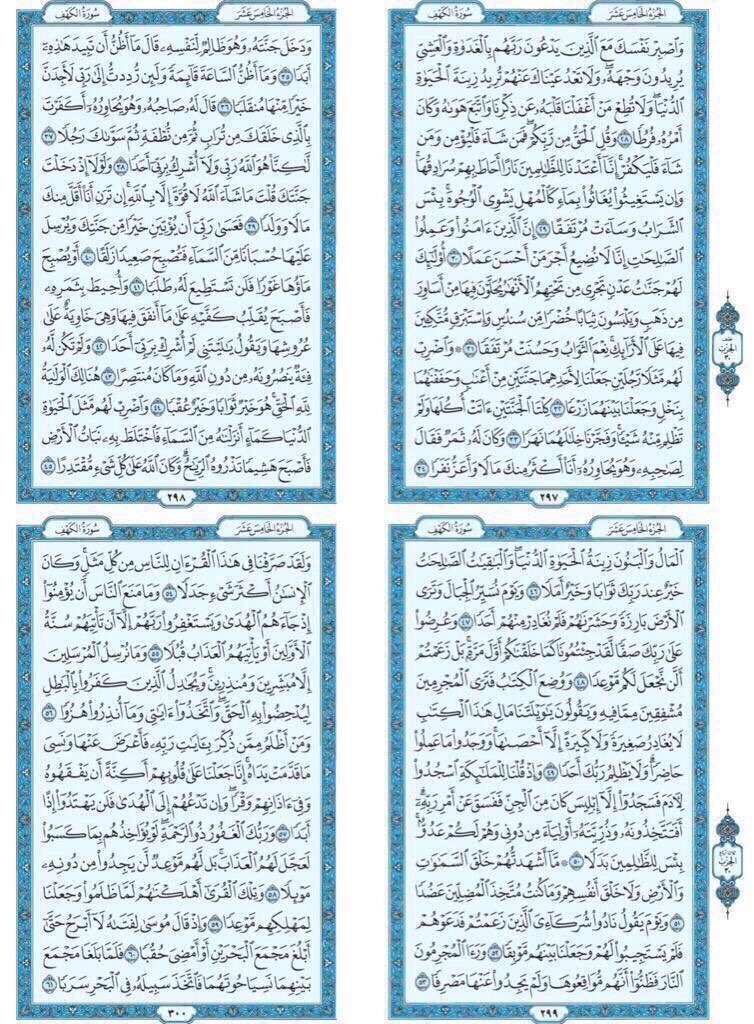 الجُزْءُ الخَامِسَ عَشَرَ
سُورَةُ الكَهْفِ
وَٱصْبِرْ نَفْسَكَ مَعَ ٱلَّذِينَ يَدْعُونَ رَبَّهُم بِٱلْغَدَوٰةِ وَٱلْعَشِيِّ
يُرِيدُونَ وَجْهَهُۥۖ وَلَا تَعْدُ عَيْنَاكَ عَنْهُمْ تُرِيدُ زِينَةَ ٱلْحَيَوٰةِ
ٱلدُّنْيَاۖ وَلَا تُطِعْ مَنْ أَغْفَلْنَا قَلْبَهُۥ عَن ذِكْرِنَا وَٱتَّبَعَ هَوَىٰهُ وَكَانَ
أَمْرُهُۥ فُرُطًا ٢٨ وَقُلِ ٱلْحَقُّ مِن رَّبِّكُمْۖ فَمَن شَآءَ فَلْيُؤْمِن وَمَن
شَآءَ فَلْيَكْفُرْۚ إِنَّآ أَعْتَدْنَا لِلظَّٰلِمِينَ نَارًا أَحَاطَ بِهِمْ سُرَادِقُهَاۚ
وَإِن يَسْتَغِيثُوا۟ يُغَاثُوا۟ بِمَآءٍ كَٱلْمُهْلِ يَشْوِى ٱلْوُجُوهَۚ بِئْسَ
ٱلشَّرَابُ وَسَآءَتْ مُرْتَفَقًا ٢٩ إِنَّ ٱلَّذِينَ ءَامَنُوا۟ وَعَمِلُوا۟
ٱلصَّٰلِحَٰتِ إِنَّا لَا نُضِيعُ أَجْرَ مَنْ أَحْسَنَ عَمَلًا ٣٠ أُو۟لَٰٓئِكَ
لَهُمْ جَنَّٰتُ عَدْنٍ تَجْرِى مِن تَحْتِهِمُ ٱلْأَنْهَٰرُ يُحَلَّوْنَ فِيهَا مِنْ أَسَاوِرَ
مِن ذَهَبٍ وَيَلْبَسُونَ ثِيَابًا خُضْرًا مِّن سُندُسٍ وَإِسْتَبْرَقٍ مُّتَّكِـِٔينَ
فِيهَا عَلَى ٱلْأَرَآئِكِۚ نِعْمَ ٱلثَّوَابُ وَحَسُنَتْ مُرْتَفَقًا ٣١ ۞ وَٱضْرِبْ
لَهُم مَّثَلًا رَّجُلَيْنِ جَعَلْنَا لِأَحَدِهِمَا جَنَّتَيْنِ مِنْ أَعْنَٰبٍ وَحَفَفْنَٰهُمَا
بِنَخْلٍ وَجَعَلْنَا بَيْنَهُمَا زَرْعًا ٣٢ كِلْتَا ٱلْجَنَّتَيْنِ ءَاتَتْ أُكُلَهَا وَلَمْ
تَظْلِم مِّنْهُ شَيْـًٔاۚ وَفَجَّرْنَا خِلَٰلَهُمَا نَهَرًا ٣٣ وَكَانَ لَهُۥ ثَمَرٌ فَقَالَ
لِصَٰحِبِهِۦ وَهُوَ يُحَاوِرُهُۥٓ أَنَا۠ أَكْثَرُ مِنكَ مَالًا وَأَعَزُّ نَفَرًا ٣٤
٢٩٧
نصف
الحزب
٣٠
الجُزْءُ الخَامِسَ عَشَرَ
سُورَةُ الكَهْفِ
وَدَخَلَ جَنَّتَهُۥ وَهُوَ ظَالِمٌ لِّنَفْسِهِۦ قَالَ مَآ أَظُنُّ أَن تَبِيدَ هَٰذِهِۦٓ
أَبَدًا ٣٥ وَمَآ أَظُنُّ ٱلسَّاعَةَ قَآئِمَةً وَلَئِن رُّدِدتُّ إِلَىٰ رَبِّى لَأَجِدَنَّ
خَيْرًا مِّنْهَا مُنقَلَبًا ٣٦ قَالَ لَهُۥ صَاحِبُهُۥ وَهُوَ يُحَاوِرُهُۥٓ أَكَفَرْتَ
بِٱلَّذِى خَلَقَكَ مِن تُرَابٍ ثُمَّ مِن نُّطْفَةٍ ثُمَّ سَوَّىٰكَ رَجُلًا ٣٧
لَّٰكِنَّا۠ هُوَ ٱللَّهُ رَبِّى وَلَآ أُشْرِكُ بِرَبِّىٓ أَحَدًا ٣٨ وَلَوْلَآ إِذْ دَخَلْتَ
جَنَّتَكَ قُلْتَ مَا شَآءَ ٱللَّهُ لَا قُوَّةَ إِلَّا بِٱللَّهِۚ إِن تَرَنِ أَنَا۠ أَقَلَّ مِنكَ
مَالًا وَوَلَدًا ٣٩ فَعَسَىٰ رَبِّىٓ أَن يُؤْتِيَنِ خَيْرًا مِّن جَنَّتِكَ وَيُرْسِلَ
عَلَيْهَا حُسْبَانًا مِّنَ ٱلسَّمَآءِ فَتُصْبِحَ صَعِيدًا زَلَقًا ٤٠ أَوْ يُصْبِحَ
مَآؤُهَا غَوْرًا فَلَن تَسْتَطِيعَ لَهُۥ طَلَبًا ٤١ وَأُحِيطَ بِثَمَرِهِۦ
فَأَصْبَحَ يُقَلِّبُ كَفَّيْهِ عَلَىٰ مَآ أَنفَقَ فِيهَا وَهِىَ خَاوِيَةٌ عَلَىٰ
عُرُوشِهَا وَيَقُولُ يَٰلَيْتَنِى لَمْ أُشْرِكْ بِرَبِّىٓ أَحَدًا ٤٢ وَلَمْ تَكُن لَّهُۥ
فِئَةٌ يَنصُرُونَهُۥ مِن دُونِ ٱللَّهِ وَمَا كَانَ مُنتَصِرًا ٤٣ هُنَالِكَ ٱلْوَلَٰيَةُ
لِلَّهِ ٱلْحَقِّۚ هُوَ خَيْرٌ ثَوَابًا وَخَيْرٌ عُقْبًا ٤٤ وَٱضْرِبْ لَهُم مَّثَلَ ٱلْحَيَوٰةِ
ٱلدُّنْيَا كَمَآءٍ أَنزَلْنَٰهُ مِنَ ٱلسَّمَآءِ فَٱخْتَلَطَ بِهِۦ نَبَاتُ ٱلْأَرْضِ
فَأَصْبَحَ هَشِيمًا تَذْرُوهُ ٱلرِّيَٰحُۗ وَكَانَ ٱللَّهُ عَلَىٰ كُلِّ شَىْءٍ مُّقْتَدِرًا ٤٥
٢٩٨
الجُزْءُ الخَامِسَ عَشَرَ
سُورَةُ الكَهْفِ
ٱلْمَالُ وَٱلْبَنُونَ زِينَةُ ٱلْحَيَوٰةِ ٱلدُّنْيَاۖ وَٱلْبَٰقِيَٰتُ ٱلصَّٰلِحَٰتُ
خَيْرٌ عِندَ رَبِّكَ ثَوَابًا وَخَيْرٌ أَمَلًا ٤٦ وَيَوْمَ نُسَيِّرُ ٱلْجِبَالَ وَتَرَى
ٱلْأَرْضَ بَارِزَةً وَحَشَرْنَٰهُمْ فَلَمْ نُغَادِرْ مِنْهُمْ أَحَدًا ٤٧ وَعُرِضُوا۟
عَلَىٰ رَبِّكَ صَفًّا لَّقَدْ جِئْتُمُونَا كَمَا خَلَقْنَٰكُمْ أَوَّلَ مَرَّةٍۭۚ بَلْ زَعَمْتُمْ
أَلَّن نَّجْعَلَ لَكُم مَّوْعِدًا ٤٨ وَوُضِعَ ٱلْكِتَٰبُ فَتَرَى ٱلْمُجْرِمِينَ
مُشْفِقِينَ مِمَّا فِيهِ وَيَقُولُونَ يَٰوَيْلَتَنَا مَالِ هَٰذَا ٱلْكِتَٰبِ
لَا يُغَادِرُ صَغِيرَةً وَلَا كَبِيرَةً إِلَّآ أَحْصَىٰهَاۚ وَوَجَدُوا۟ مَا عَمِلُوا۟
حَاضِرًاۗ وَلَا يَظْلِمُ رَبُّكَ أَحَدًا ٤٩ وَإِذْ قُلْنَا لِلْمَلَٰٓئِكَةِ ٱسْجُدُوا۟
لِـَٔادَمَ فَسَجَدُوٓا۟ إِلَّآ إِبْلِيسَ كَانَ مِنَ ٱلْجِنِّ فَفَسَقَ عَنْ أَمْرِ رَبِّهِۦٓۗ
أَفَتَتَّخِذُونَهُۥ وَذُرِّيَّتَهُۥٓ أَوْلِيَآءَ مِن دُونِى وَهُمْ لَكُمْ عَدُوٌّۢۚ
بِئْسَ لِلظَّٰلِمِينَ بَدَلًا ٥٠ ۞ مَّآ أَشْهَدتُّهُمْ خَلْقَ ٱلسَّمَٰوَٰتِ
وَٱلْأَرْضِ وَلَا خَلْقَ أَنفُسِهِمْ وَمَا كُنتُ مُتَّخِذَ ٱلْمُضِلِّينَ عَضُدًا
٥١ وَيَوْمَ يَقُولُ نَادُوا۟ شُرَكَآءِىَ ٱلَّذِينَ زَعَمْتُمْ فَدَعَوْهُمْ
فَلَمْ يَسْتَجِيبُوا۟ لَهُمْ وَجَعَلْنَا بَيْنَهُم مَّوْبِقًا ٥٢ وَرَءَا ٱلْمُجْرِمُونَ
ٱلنَّارَ فَظَنُّوٓا۟ أَنَّهُم مُّوَاقِعُوهَا وَلَمْ يَجِدُوا۟ عَنْهَا مَصْرِفًا ٥٣
٢٩٩
الحزب
٣٠
الجُزْءُ الخَامِسَ عَشَرَ
سُورَةُ الكَهْفِ
وَلَقَدْ صَرَّفْنَا فِى هَٰذَا ٱلْقُرْءَانِ لِلنَّاسِ مِن كُلِّ مَثَلٍۚ وَكَانَ
ٱلْإِنسَٰنُ أَكْثَرَ شَىْءٍ جَدَلًا ٥٤ وَمَا مَنَعَ ٱلنَّاسَ أَن يُؤْمِنُوٓا۟
إِذْ جَآءَهُمُ ٱلْهُدَىٰ وَيَسْتَغْفِرُوا۟ رَبَّهُمْ إِلَّآ أَن تَأْتِيَهُمْ سُنَّةُ
ٱلْأَوَّلِينَ أَوْ يَأْتِيَهُمُ ٱلْعَذَابُ قُبُلًا ٥٥ وَمَا نُرْسِلُ ٱلْمُرْسَلِينَ
إِلَّا مُبَشِّرِينَ وَمُنذِرِينَۚ وَيُجَٰدِلُ ٱلَّذِينَ كَفَرُوا۟ بِٱلْبَٰطِلِ
لِيُدْحِضُوا۟ بِهِ ٱلْحَقَّۖ وَٱتَّخَذُوٓا۟ ءَايَٰتِى وَمَآ أُنذِرُوا۟ هُزُوًا ٥٦
وَمَنْ أَظْلَمُ مِمَّن ذُكِّرَ بِـَٔايَٰتِ رَبِّهِۦ فَأَعْرَضَ عَنْهَا وَنَسِىَ
مَا قَدَّمَتْ يَدَاهُۚ إِنَّا جَعَلْنَا عَلَىٰ قُلُوبِهِمْ أَكِنَّةً أَن يَفْقَهُوهُ
وَفِىٓ ءَاذَانِهِمْ وَقْرًاۖ وَإِن تَدْعُهُمْ إِلَى ٱلْهُدَىٰ فَلَن يَهْتَدُوٓا۟ إِذًا
أَبَدًا ٥٧ وَرَبُّكَ ٱلْغَفُورُ ذُو ٱلرَّحْمَةِۖ لَوْ يُؤَاخِذُهُم بِمَا كَسَبُوا۟
لَعَجَّلَ لَهُمُ ٱلْعَذَابَۚ بَل لَّهُم مَّوْعِدٌ لَّن يَجِدُوا۟ مِن دُونِهِۦ
مَوْئِلًا ٥٨ وَتِلْكَ ٱلْقُرَىٰٓ أَهْلَكْنَٰهُمْ لَمَّا ظَلَمُوا۟ وَجَعَلْنَا
لِمَهْلِكِهِم مَّوْعِدًا ٥٩ وَإِذْ قَالَ مُوسَىٰ لِفَتَىٰهُ لَآ أَبْرَحُ حَتَّىٰٓ
أَبْلُغَ مَجْمَعَ ٱلْبَحْرَيْنِ أَوْ أَمْضِىَ حُقُبًا ٦٠ فَلَمَّا بَلَغَا مَجْمَعَ
بَيْنِهِمَا نَسِيَا حُوتَهُمَا فَٱتَّخَذَ سَبِيلَهُۥ فِى ٱلْبَحْرِ سَرَبًا ٦١
٣٠٠